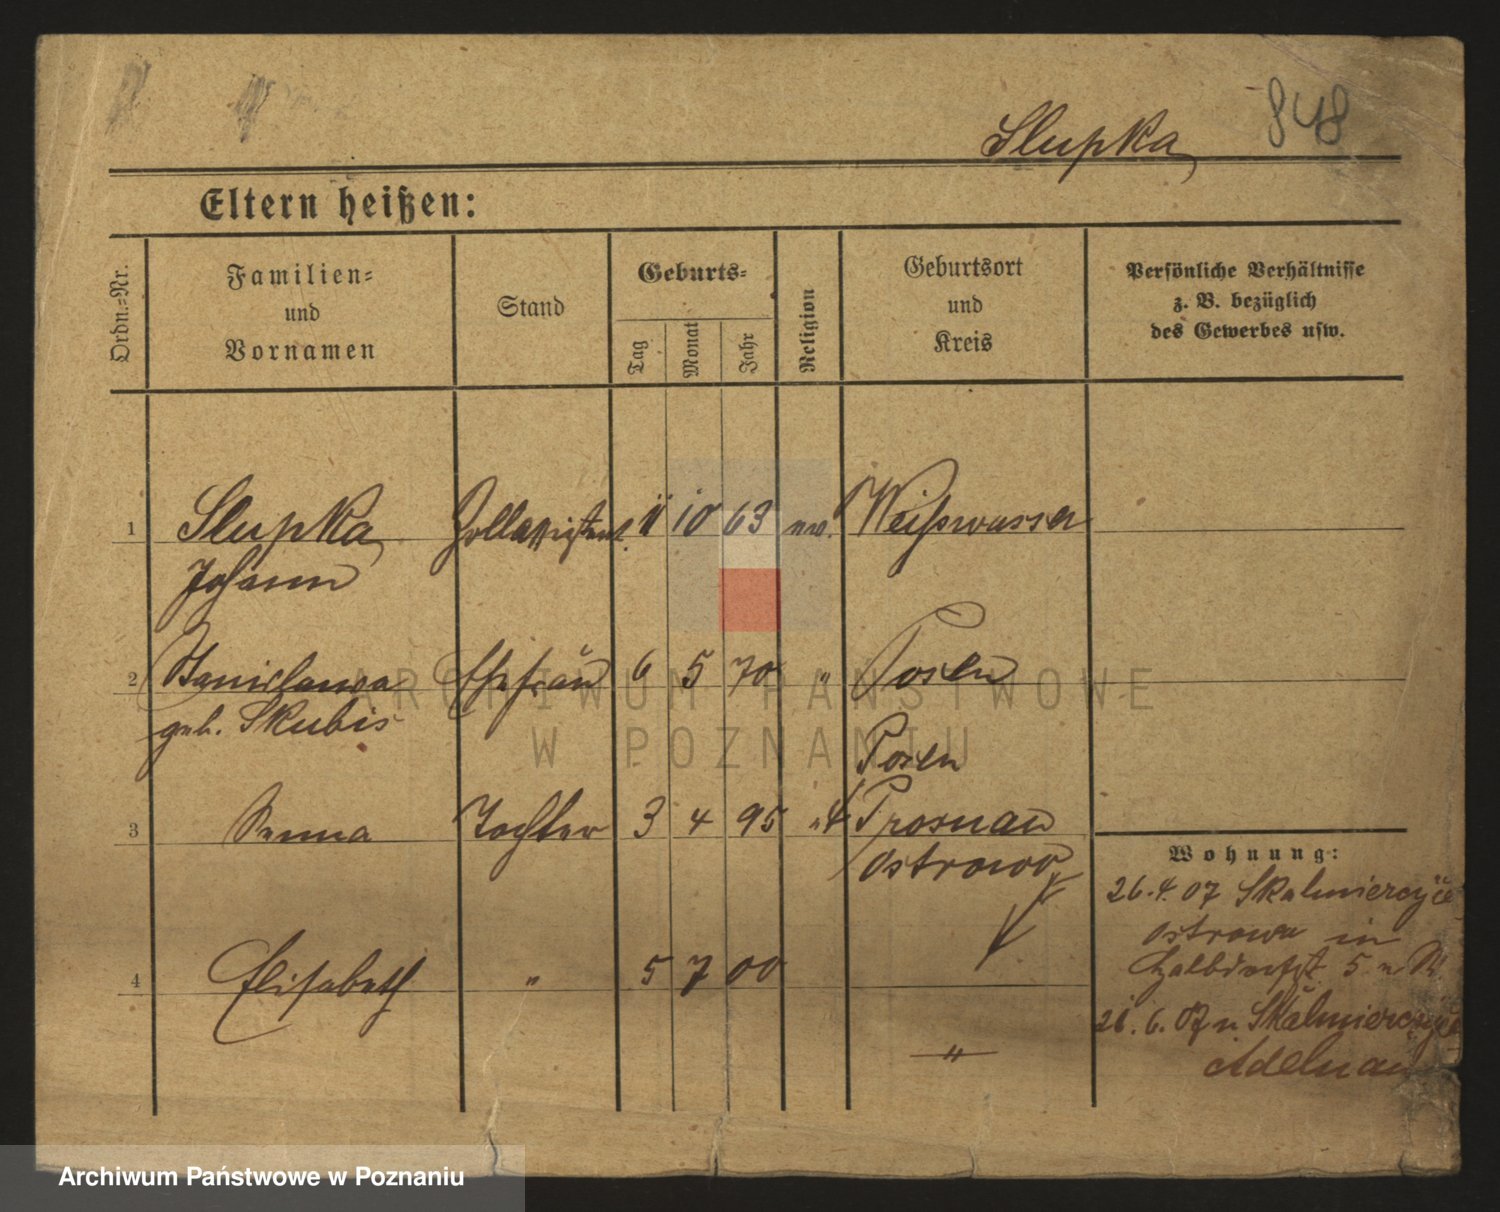 848
Slupka
Eltern heißen:
Ordn.=Nr.
Familien=
und
Vornamen
Stand
Geburts=
Tag
Monat
Jahr
Religion
Geburtsort
und
Kreis
Persönliche Verhältnisse
z. B. bezüglich
des Gewerbes usw.
1 Slupka Zollassistent 11 10 63 Weißwasser
Johann
2 Stanislawa Ehefrau 6 5 70 " Posen
geb. Skubis
Posen
3 Tochter 3 4 95 " Prosnau
Ostrowo
Wohnung:
26.4.07 Skalmierzyce
Ostrowo in
Halbdorfst. 5
4 Elisabeth " 5 7 00
21.6.07 n. Skalmierzyce
"
Adelnau
ARCHIWUM PAŃSTWOWE
W POZNANIU
Archiwum Państwowe w Poznaniu